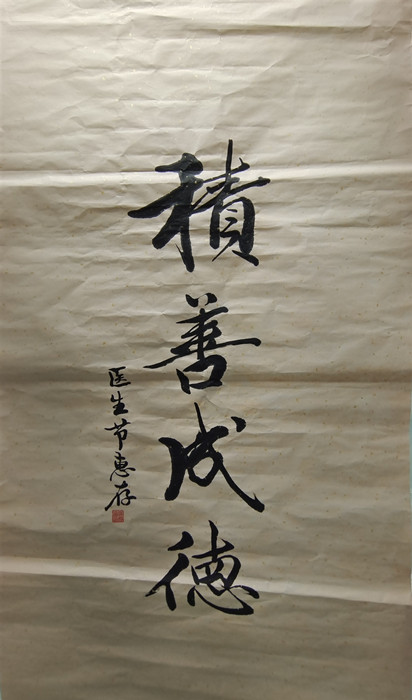 積善成德
医生节惠存